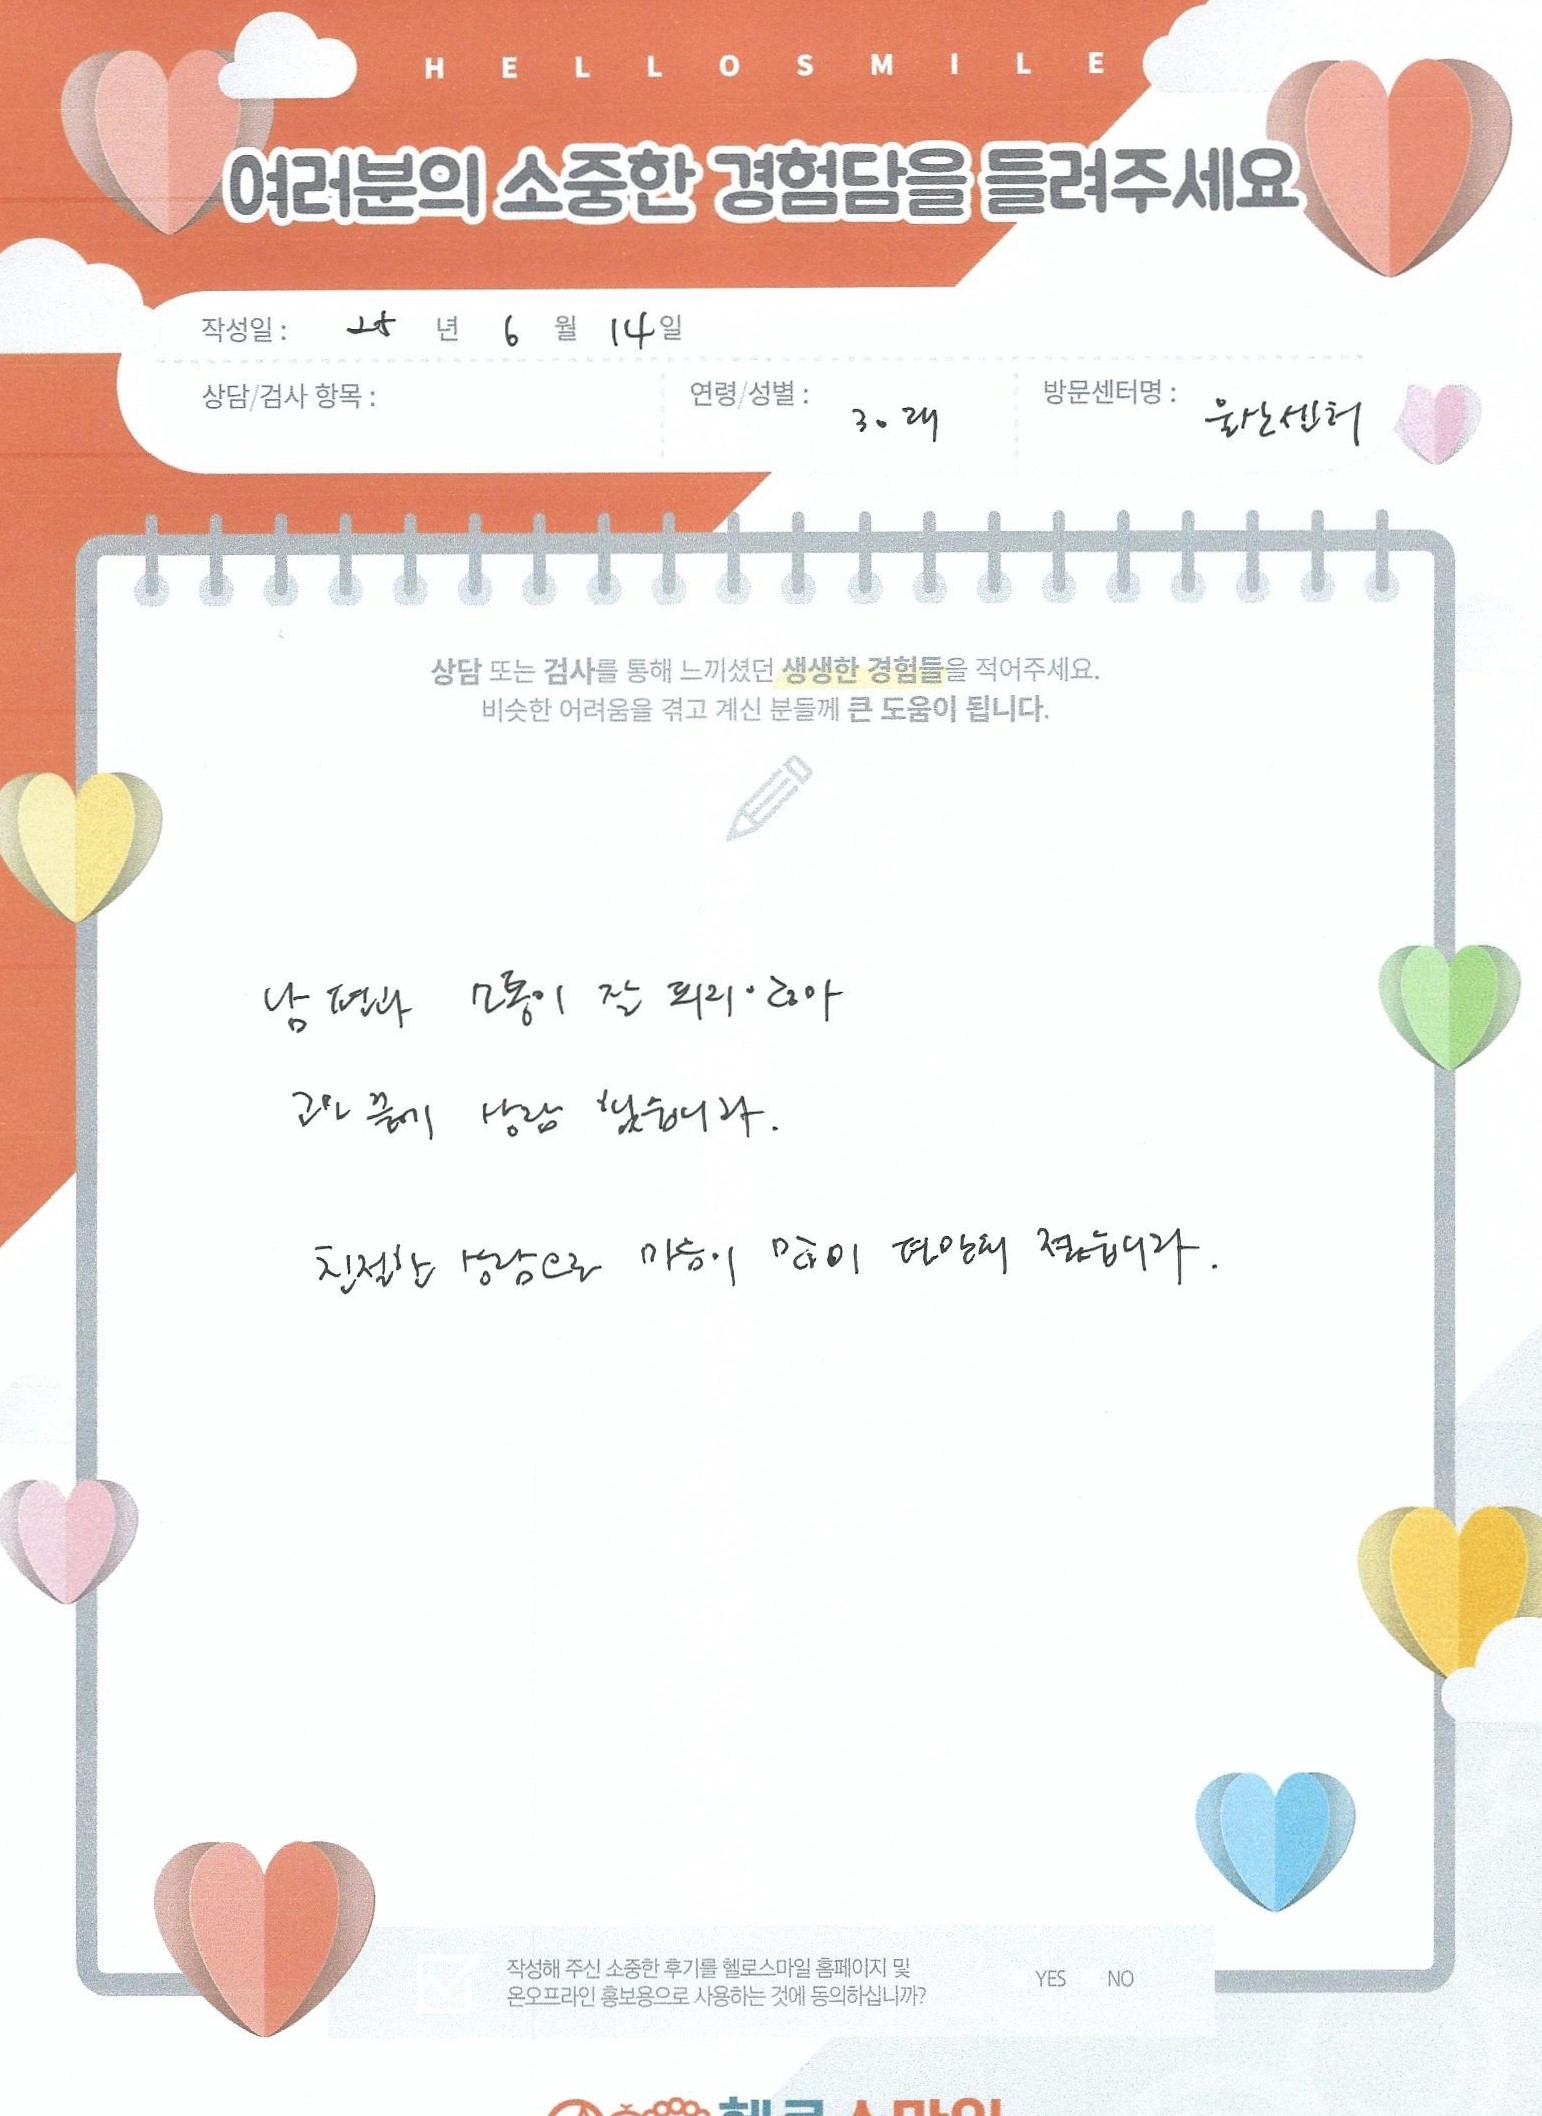 HELLOSMILE
여러분의 소중한 경험담을 들려주세요
작성일 : 25 년 6 월 14일
상담/검사 항목 : 연령/성별 : 30대 방문센터명 : 울산센터
상담 또는 검사를 통해 느끼셨던 생생한 경험들을 적어주세요.
비슷한 어려움을 겪고 계신 분들께 큰 도움이 됩니다.
남편과 소통이 잘 되지 않아
고민 끝에 상담 했습니다.
친절한 상담으로 마음이 많이 편안해 졌습니다.
작성해 주신 소중한 후기를 헬로스마일 홈페이지 및
온오프라인 홍보용으로 사용하는 것에 동의하십니까? YES NO
헬로스마일